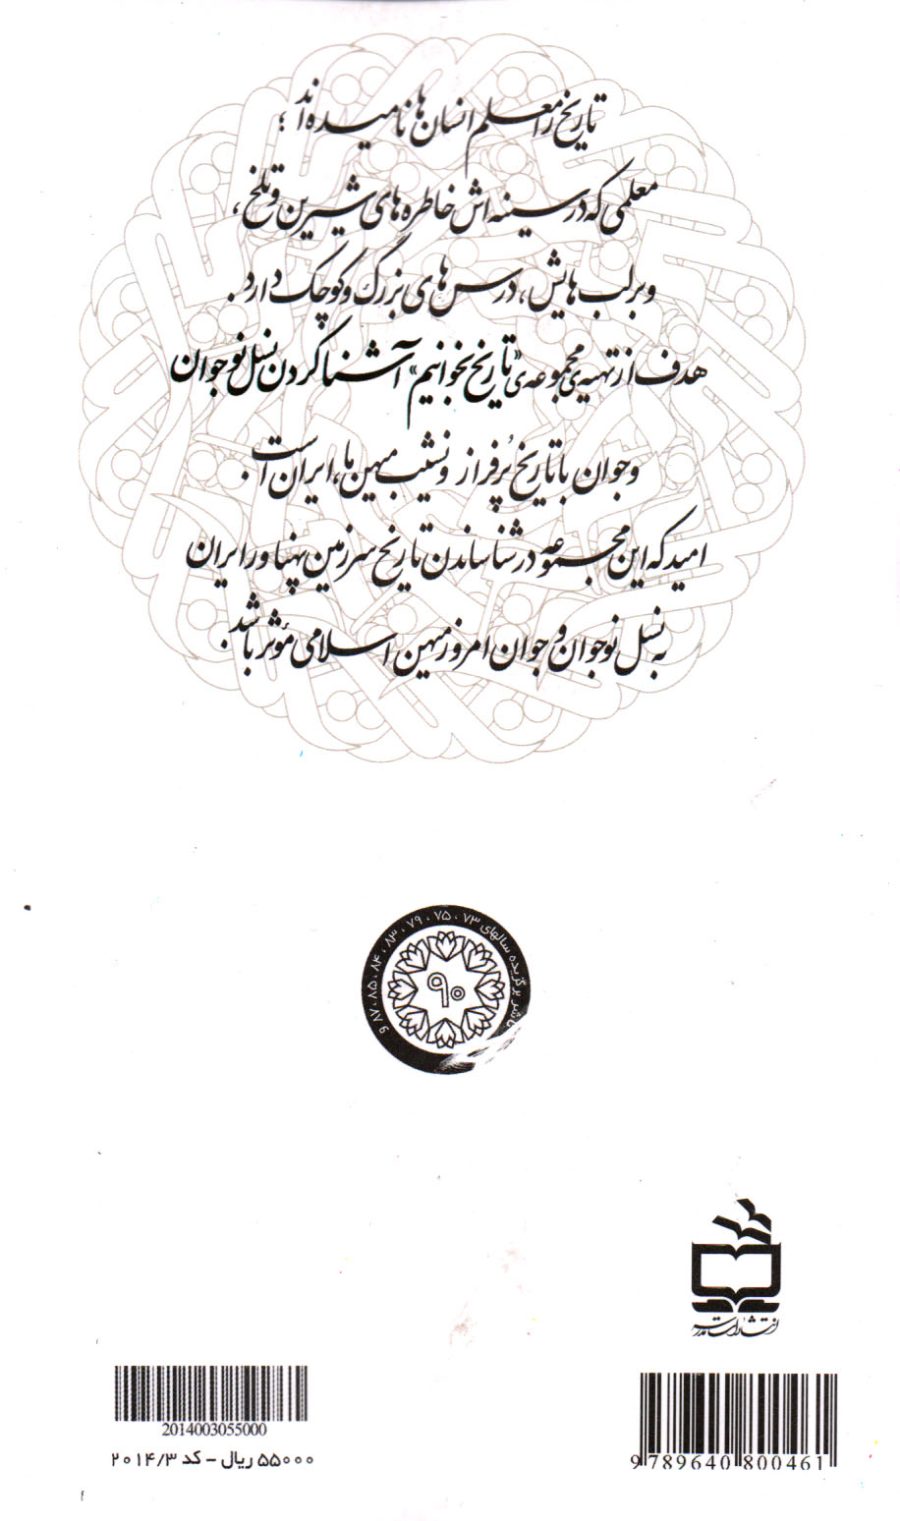 تاریخ را معلم انسان‌ها نامیده‌اند؛
معلمی که در سینه‌اش خاطره‌های شیرین و تلخ،
و بر لب‌هایش، درس‌های بزرگ و کوچک دارد.
هدف از تهیه‌ی مجموعه‌ی «تاریخ بخوانیم» آشنا کردن نسل نوجوان
و جوان با تاریخ پُرفراز و نشیب میهن ما، ایران است.
امید که این مجموعه در شناساندن تاریخ سرزمین پهناور ایران
به نسل نوجوان و جوان امروز میهن اسلامی مؤثر باشد.
ناشر برگزیده سالهای ۷۳ ، ۷۵ ، ۷۹ ، ۸۳ ، ۸۴ ، ۸۵ ، ۸۷ و
۹۰
انتشارات مدرسه
2014003055000
۵۵۰۰۰ ریال - کد ۲۰۱۴/۳
9 789640 800461